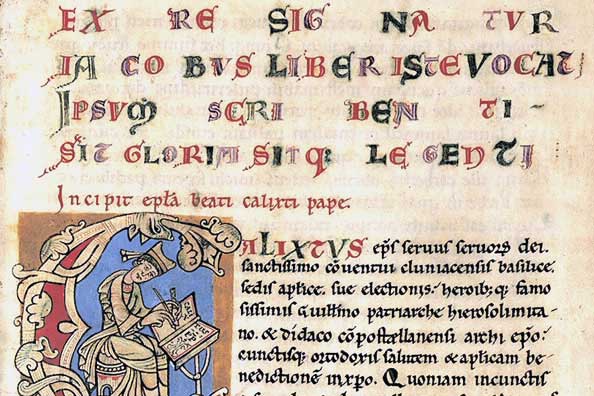 EX RE SIGNATUR
IACOBVS LIBER ISTE VOCAT
IPSVM SCRIBENTI-
SIT GLORIA SITQ: LEGENTI
Incipit epła beati calixti pape.
CALIXTVS epſ ſeruus ſeruoꝝ dei.
ſanctiſſimo cōuentui cluniacenſis baſilice.
ſedis aplice. ſue electionis. heroib; q; famo
ſiſſimis guillmo patriarche hieroſolimita
no. & didaco cōpoſtellanenſi archi epō.
cunctiſq; ortodoxis ſalutem & aplicam be
nedictionē inxp̄o. Quoniam incunctis